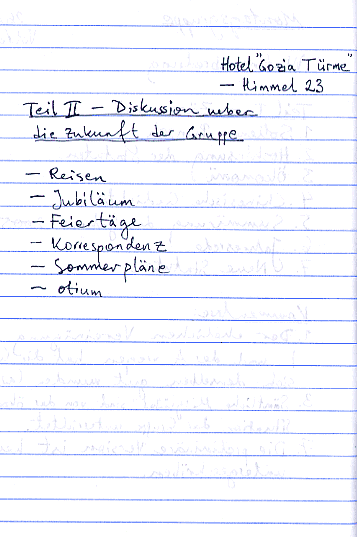 Hotel "Gozia Türme"
— Himmel 23
Teil II — Diskussion ueber
die Zukunft der Gruppe
— Reisen
— Jubiläum
— Feiertäge
— Korrespondenz
— Sommerpläne
— otium